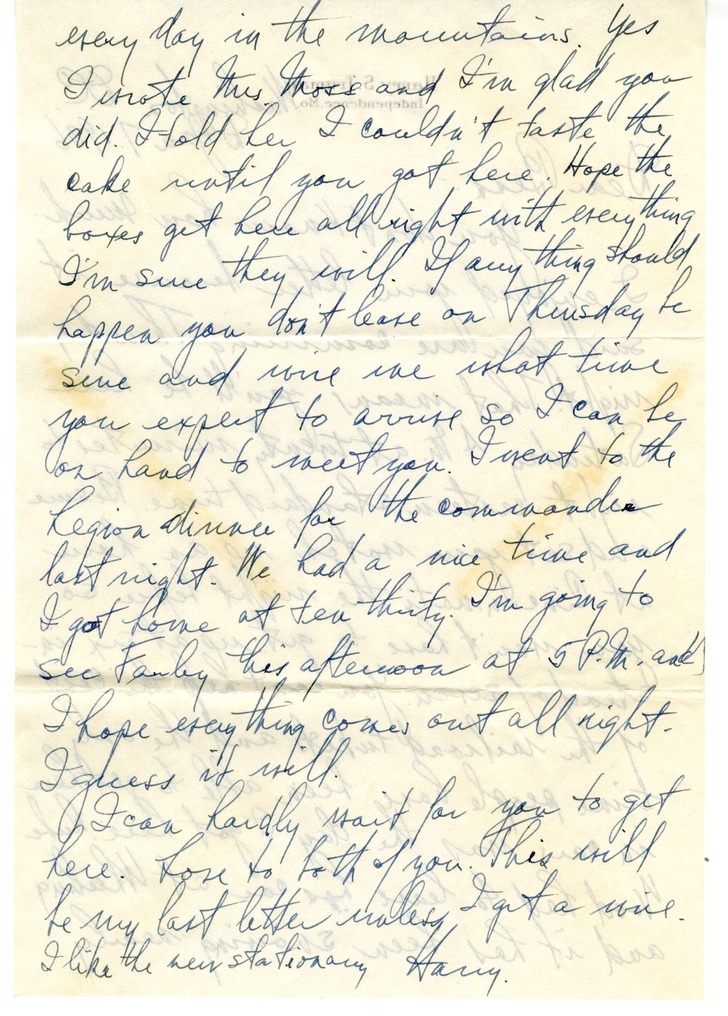 every day in the mountains. Yes
I wrote Mrs. Moss and I'm glad you
did. I told her I couldn't taste the
cake until you got here. Hope the
boxes get here all right with everything
I'm sure they will. If any thing should
happen you don't leave on Thursday be
sure and wire me what time
you expect to arrive so I can be
on hand to meet you. I went to the
Legion dinner for the commander
last night. We had a nice time and
I got home at ten thirty. I'm going to
see this afternoon at 5 P.M. and
I hope every thing comes out all right.
I guess it will.
I can hardly wait for you to get
here. Love to both of you. This will
be my last letter unless I get a wire.
I like the new stationary Harry.